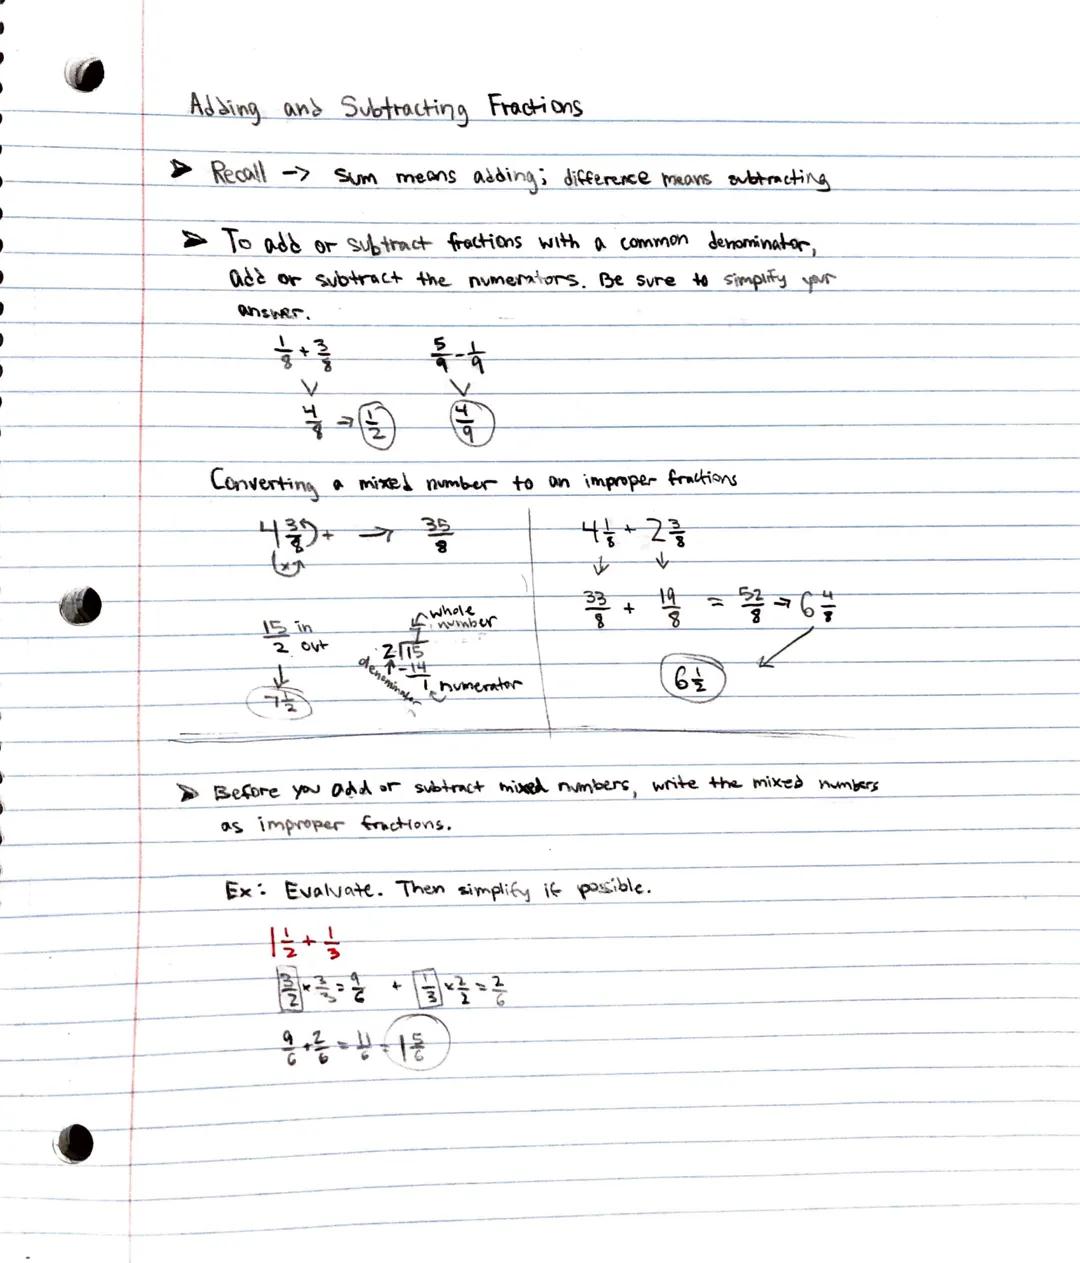 Adding and Subtracting Fractions
➤ Recall → sum means adding; difference means subtracting
➤ To add or subtract fractions with a common denominator,
add or subtract the numerators. Be sure to simplify your
answer.
1/8 + 3/8    5/9 - 1/9
4/8 → 1/2    4/9
Converting a mixed number to an improper fractions
4 3/8 + → 35/8
x
15/2 in out
↓
7 1/2
whole number
7
2√15
-14
1 numerator
denominator
4 1/8 + 2 3/8
↓ ↓
33/8 + 19/8 = 52/8 → 6 4/8
6 1/2
➤ Before you add or subtract mixed numbers, write the mixed numbers
as improper fractions.
Ex: Evaluate. Then simplify if possible.
1 1/2 + 1/3
3/2 × 3/3 = 9/6 + 1/3 × 2/2 = 2/6
9/6 + 2/6 = 11/6 = 1 5/6